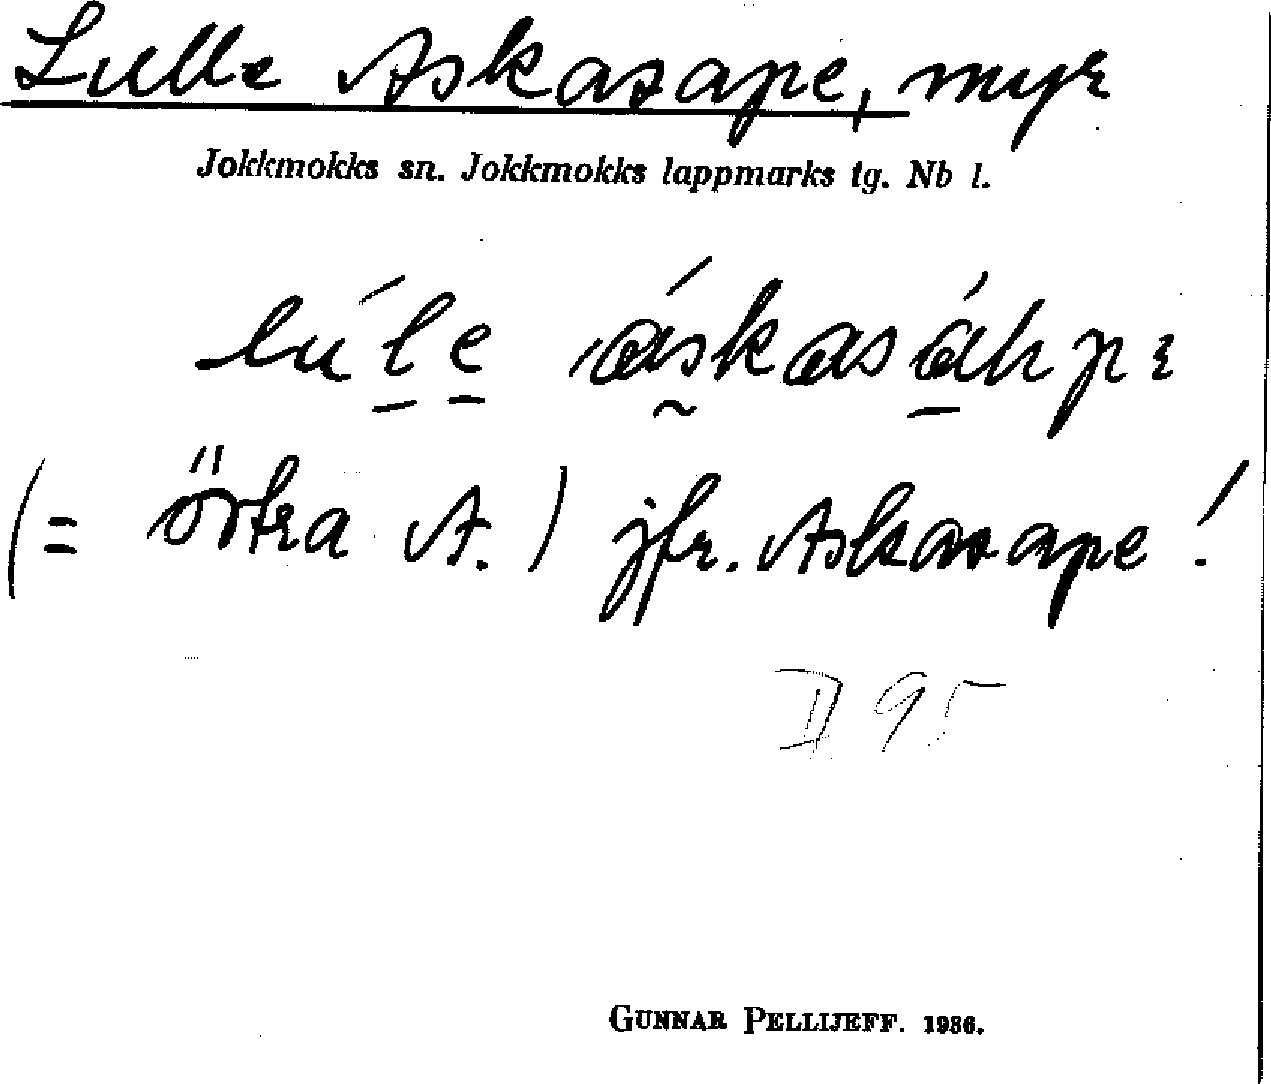 Lulle Askasape, myr
Jokkmokks sn. Jokkmokks lappmarks tg. Nb l.
lúle áskasáhpe
(= östra A.) jfr. Askasape!
II 95
GUNNAR PELLIJEFF. 1936.